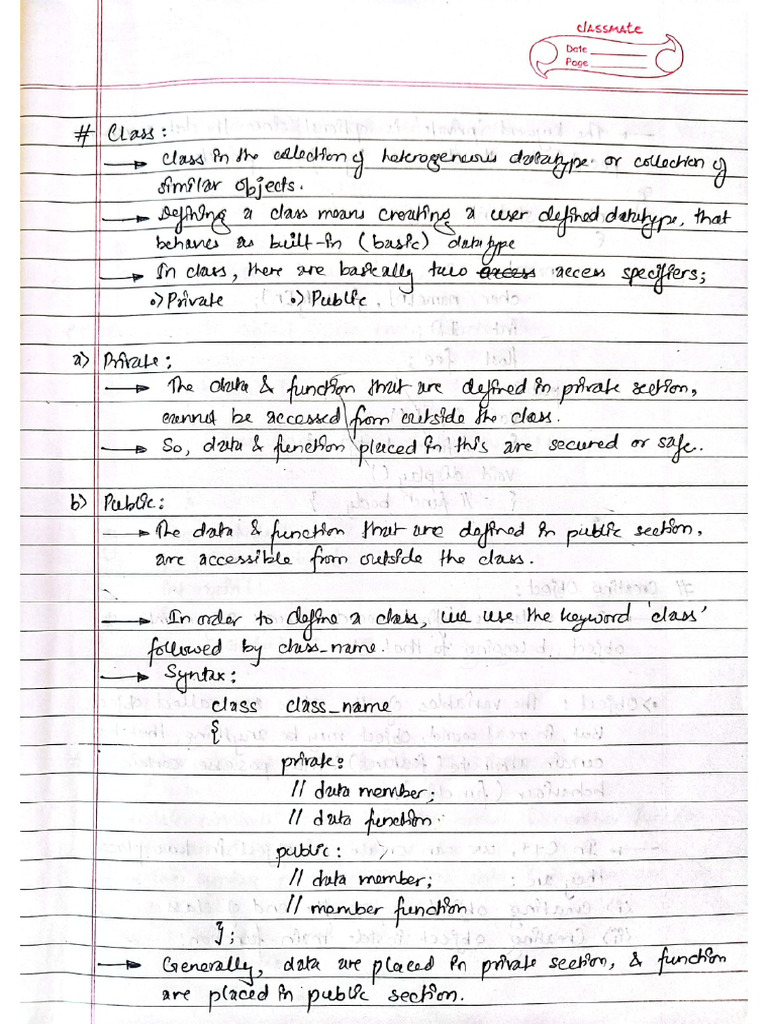 classmate
Date
Page
# Class:
→ Class in the collection of heterogeneous datatype or collection of
similar objects.
→ Defining a class means creating a user defined datatype, that
behaves as built-in (basic) datatype
→ In class, there are basically two access specifiers;
•> Private •> Public
a> Private:
→ The data & function that are defined in private section,
cannot be accessed from outside the class.
→ So, data & function placed in this are secured or safe.
b> Public:
→ The data & function that are defined in public section,
are accessible from outside the class.
→ In order to define a class, we use the keyword 'class'
followed by class_name.
→ Syntax:
class class_name
{
private:
// data member;
// data function
public:
// data member;
// member function
};
→ Generally, data are placed in private section, & function
are placed in public section.